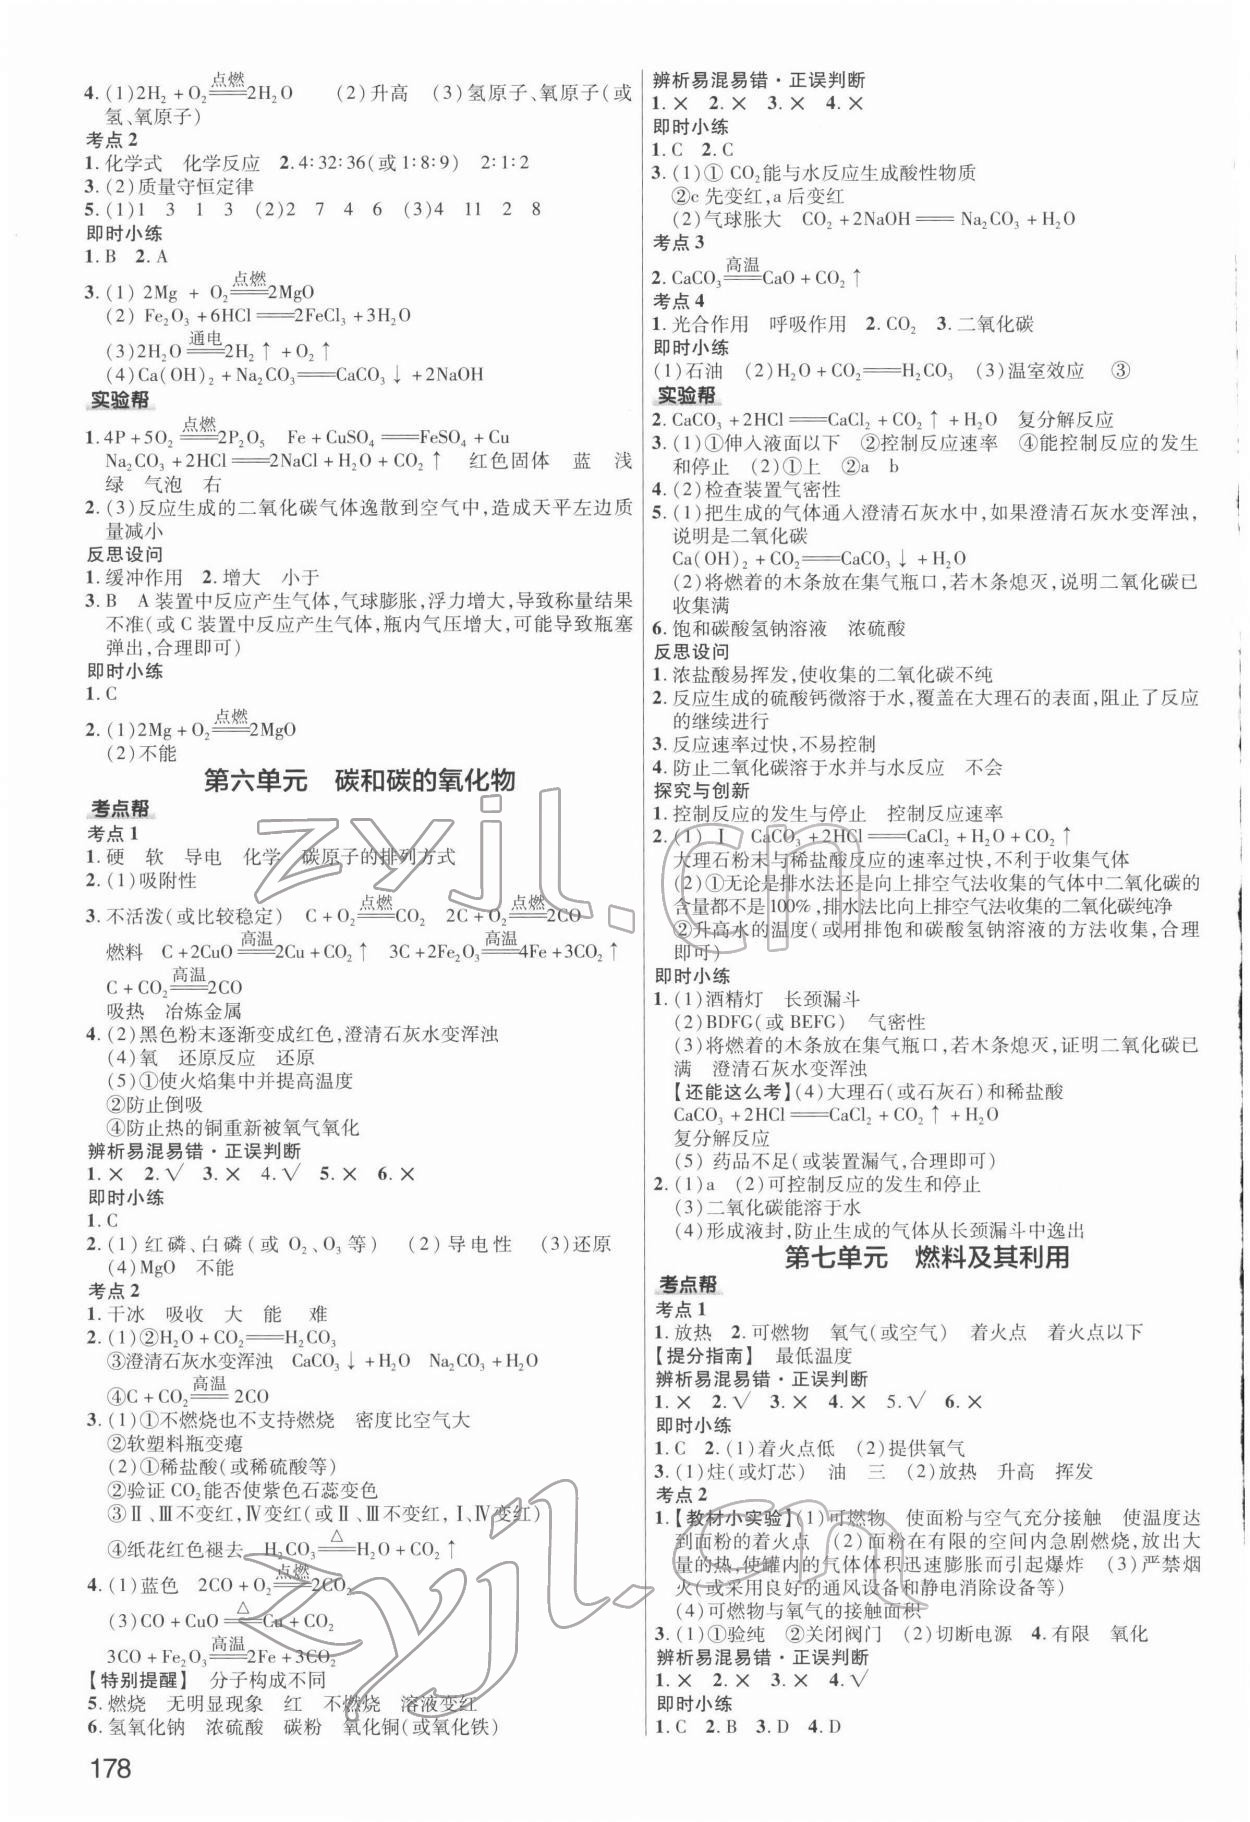 4. (1)2H₂+O₂══点燃══2H₂O　(2)升高　(3)氢原子、氧原子(或
氢、氧原子)
考点2
1. 化学式　化学反应　2. 4∶32∶36(或1∶8∶9)　2∶1∶2
3. (2)质量守恒定律
5. (1)1　3　1　3　(2)2　7　4　6　(3)4　11　2　8
即时小练
1. B　2. A
3. (1) 2Mg + O₂══点燃══2MgO
(2) Fe₂O₃+6HCl══2FeCl₃+3H₂O
(3)2H₂O══通电══2H₂↑+O₂↑
(4)Ca(OH)₂+Na₂CO₃══CaCO₃↓+2NaOH
实验帮
1. 4P+5O₂══点燃══2P₂O₅　Fe+CuSO₄══FeSO₄+Cu
Na₂CO₃+2HCl══2NaCl+H₂O+CO₂↑　红色固体　蓝　浅
绿　气泡　右
2. (3)反应生成的二氧化碳气体逸散到空气中,造成天平左边质
量减小
反思设问
1. 缓冲作用　2. 增大　小于
3. B　A装置中反应产生气体,气球膨胀,浮力增大,导致称量结果
不准(或C装置中反应产生气体,瓶内气压增大,可能导致瓶塞
弹出,合理即可)
即时小练
1. C
2. (1)2Mg+O₂══点燃══2MgO
(2)不能
第六单元　碳和碳的氧化物
考点帮
考点1
1. 硬　软　导电　化学　碳原子的排列方式
2. (1)吸附性
3. 不活泼(或比较稳定)　C+O₂══点燃══CO₂　2C+O₂══点燃══2CO
燃料　C+2CuO══高温══2Cu+CO₂↑　3C+2Fe₂O₃══高温══4Fe+3CO₂↑
C+CO₂══高温══2CO
吸热　冶炼金属
4. (2)黑色粉末逐渐变成红色,澄清石灰水变浑浊
(4)氧　还原反应　还原
(5)①使火焰集中并提高温度
②防止倒吸
④防止热的铜重新被氧气氧化
辨析易混易错·正误判断
1. ×　2. √　3. ×　4. √　5. ×　6. ×
即时小练
1. C
2. (1)红磷、白磷(或 O₂、O₃等)　(2)导电性　(3)还原
(4)MgO　不能
考点2
1. 干冰　吸收　大　能　难
2. (1)②H₂O+CO₂══H₂CO₃
③澄清石灰水变浑浊　CaCO₃↓+H₂O　Na₂CO₃+H₂O
④C+CO₂══高温══2CO
3. (1)①不燃烧也不支持燃烧　密度比空气大
②软塑料瓶变瘪
(2)①稀盐酸(或稀硫酸等)
②验证CO₂能否使紫色石蕊变色
③Ⅱ、Ⅲ不变红,Ⅳ变红(或Ⅱ、Ⅲ不变红,Ⅰ、Ⅳ变红)
④纸花红色褪去　H₂CO₃══△══H₂O+CO₂↑
4. (1)蓝色　2CO+O₂══点燃══2CO₂
(3)CO+CuO══△══Cu+CO₂
3CO+Fe₂O₃══高温══2Fe+3CO₂
【特别提醒】　分子构成不同
5. 燃烧　无明显现象　红　不燃烧　溶液变红
6. 氢氧化钠　浓硫酸　碳粉　氧化铜(或氧化铁)
178
辨析易混易错·正误判断
1. ×　2. ×　3. ×　4. ×
即时小练
1. C　2. C
3. (1)① CO₂能与水反应生成酸性物质
②c先变红,a后变红
(2)气球胀大　CO₂+2NaOH══Na₂CO₃+H₂O
考点3
2. CaCO₃══高温══CaO+CO₂↑
考点4
1. 光合作用　呼吸作用　2. CO₂　3. 二氧化碳
即时小练
(1)石油　(2)H₂O+CO₂══H₂CO₃　(3)温室效应　③
实验帮
2. CaCO₃+2HCl══CaCl₂+CO₂↑+H₂O　复分解反应
3. (1)①伸入液面以下　②控制反应速率　④能控制反应的发生
和停止　(2)①上　②a　b
4. (2)检查装置气密性
5. (1)把生成的气体通入澄清石灰水中,如果澄清石灰水变浑浊,
说明是二氧化碳
Ca(OH)₂+CO₂══CaCO₃↓+H₂O
(2)将燃着的木条放在集气瓶口,若木条熄灭,说明二氧化碳已
收集满
6. 饱和碳酸氢钠溶液　浓硫酸
反思设问
1. 浓盐酸易挥发,使收集的二氧化碳不纯
2. 反应生成的硫酸钙微溶于水,覆盖在大理石的表面,阻止了反应
的继续进行
3. 反应速率过快,不易控制
4. 防止二氧化碳溶于水并与水反应　不会
探究与创新
1. 控制反应的发生与停止　控制反应速率
2. (1) Ⅰ　CaCO₃+2HCl══CaCl₂+H₂O+CO₂↑
大理石粉末与稀盐酸反应的速率过快,不利于收集气体
(2)①无论是排水法还是向上排空气法收集的气体中二氧化碳的
含量都不是100%,排水法比向上排空气法收集的二氧化碳纯净
②升高水的温度(或用排饱和碳酸氢钠溶液的方法收集,合理
即可)
即时小练
1. (1)酒精灯　长颈漏斗
(2)BDFG(或BEFG)　气密性
(3)将燃着的木条放在集气瓶口,若木条熄灭,证明二氧化碳已
满　澄清石灰水变浑浊
【还能这么考】(4)大理石(或石灰石)和稀盐酸
CaCO₃+2HCl══CaCl₂+CO₂↑+H₂O
复分解反应
(5) 药品不足(或装置漏气,合理即可)
2. (1)a　(2)可控制反应的发生和停止
(3)二氧化碳能溶于水
(4)形成液封,防止生成的气体从长颈漏斗中逸出
第七单元　燃料及其利用
考点帮
考点1
1. 放热　2. 可燃物　氧气(或空气)　着火点　着火点以下
【提分指南】　最低温度
辨析易混易错·正误判断
1. ×　2. √　3. ×　4. ×　5. √　6. ×
即时小练
1. C　2. (1)着火点低　(2)提供氧气
3. (1)炷(或灯芯)　油　三　(2)放热　升高　挥发
考点2
1. 【教材小实验】(1)可燃物　使面粉与空气充分接触　使温度达
到面粉的着火点　(2)面粉在有限的空间内急剧燃烧,放出大
量的热,使罐内的气体体积迅速膨胀而引起爆炸　(3)严禁烟
火(或采用良好的通风设备和静电消除设备等)
(4)可燃物与氧气的接触面积
3. (1)①验纯　②关闭阀门　(2)切断电源　4. 有限　氧化
辨析易混易错·正误判断
1. ×　2. ×　3. ×　4. √
即时小练
1. C　2. B　3. D　4. D
zyjl.cn
zyjl.cn